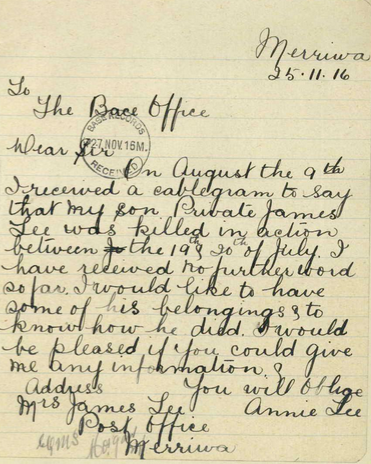 Merriwa
25.11.16
To
The Bace Office
BASE RECORDS
27 NOV. 16 M.
RECEIVED
Dear Sir
On August the 9th
I received a cablegram to say
that my son Private James
Lee was killed in action
between the 19th 20th of July. I
have received no further word
so far. I would like to have
some of his belongings & to
know how he died. I would
be pleased if you could give
me any information, &
Address You will Oblige
Mrs James Lee Annie Lee
Post Office
Merriwa